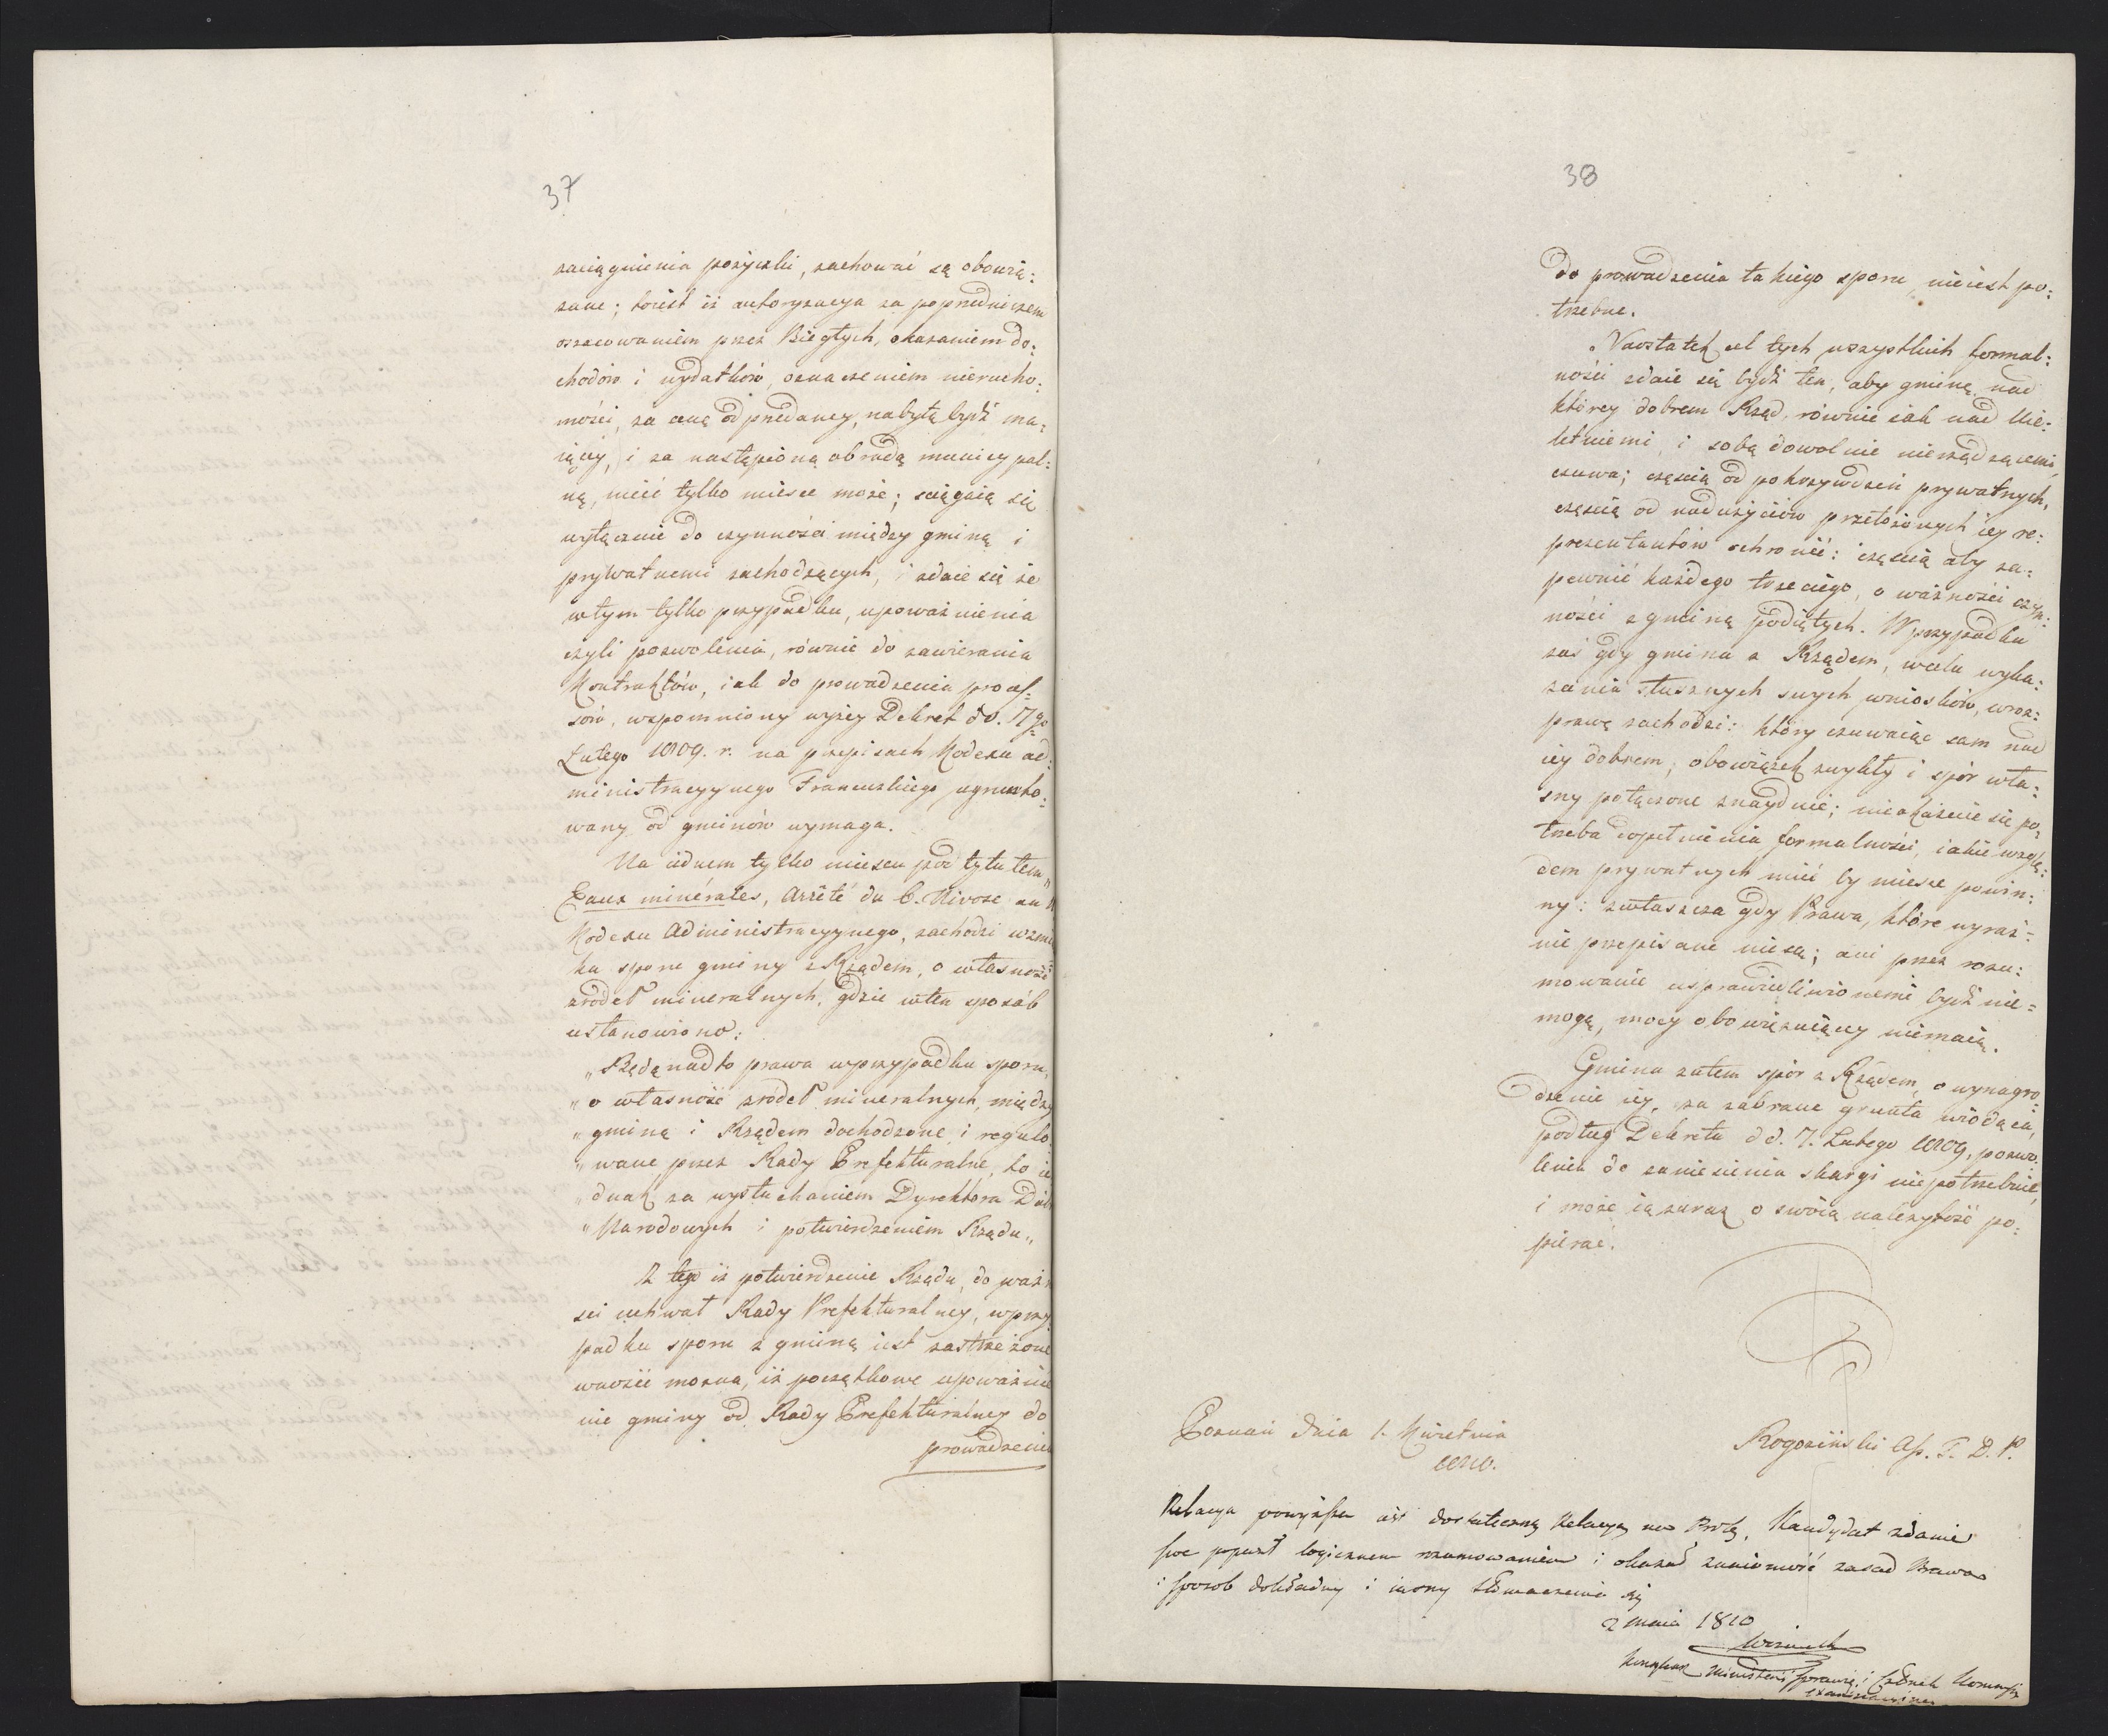 37
zaciągnienia pożyczki, zachować są obowią:
zane; toiest iż autoryzacya za poprzedniczem
oszacowaniem przez Biegłych, okazaniem do:
chodów i wydatków, oznaczeniem nierucho:
mości, za cenę odprzedaney, nabytą bydź ma:
iącey, i za nastąpioną obradą municypal:
ną, mieć tylko mieysce może; ściągaią się
wyłącznie do czynności między gminą i
prywatnemi zachodzących, i zdaie się że
w tym tylko przypadku, upoważnienia
czyli pozwolenia, równie do zawierania
Kontraktów, iak do prowadzenia proces=
sów, wspomniony wyżey Dekret do. 7go
Lutego 1809. r. na przepisach Kodexu ad:
ministracyynego Francuzkiego ugrunto:
wany od gminów wymaga.
Na iednem tylko mieyscu pod tytułem
Eaux minérales, Arrêté du 6. Nivose an
Kodexu Administracyynego, zachodzi wzmi
ka sporu gminy z Rządem, o własność
źródeł mineralnych, gdzie w ten sposób
ustanowiono:
„Będą nadto prawa w przypadku sporu,
„o własność źródeł mineralnych, między
„gminą i Rządem dochodzone i regulo
„wane przez Rady Prefekturalne, to ie
„dnak za wysłuchaniem Dyrektora Dóbr
„Narodowych i potwierdzeniem Rządu„
Z tego iż potwierdzenie Rządu, do ważn
ści uchwał Rady Prefekturalney, w przy
padku sporu z gminą iest zastrzeżone
wnosić można, iż początkowe upoważnie
nie gminy od Rady Prefekturalney do
prowadzenia
38
do prowadzenia takiego sporu nie iest po:
trzebne.
Naostatek cel tych wszystkich formal:
ności zdaie się bydź ten, aby gminę, nad
którey dobrem Rząd równie iak nad Nie:
letniemi, i sobą dowolnie nierządzącemi,
czuwa; częścią od pokrzywdzeń prywatnych,
częścią od nadużyciów przełożonych iey re:
prezentantów ochronić: częścią aby za:
pewnić każdego trzeciego, o ważności czyn:
ności z gminą podiętych. W przypadku
zaś gdy gmina z Rządem, w celu wyka:
zania słusznych swych wniosków, w roz:
prawę zachodzi: który czuwaiąc sam nad
iey dobrem, obowiązek zwykły i spór wła:
sny połączone znayduie; nie okażecie się po:
trzeba dopełnienia formalności, iakie wzglę:
dem prywatnych mieć by mieysce powin:
ny: zwłaszcza gdy Prawa, które wyraź=
nie przepisane nie są; ani przez rozu:
mowanie usprawiedliwionemi bydź nie=
mogą, mocy obowiązuiącey niemaią.
Gmina zatem spór z Rządem, o wynagro:
dzenie iey, za zabrane grunta wiodąca,
podług Dekretu dd. 7. Lutego 1809, pozwo
lenia do zaniesienia skargi niepotrzebuie,
i może ią zaraz o swoią należytość po:
pierać.
Poznań dnia 1. Kwietnia
1810.
Rogoziński Ap. T. D. P.
Relacya powyższa iest dostateczną Relacyą na Próbę. Kandydat zdanie
swe poparł logicznem rozumowaniem i okazał znaiomość zasad Prawa
i sposób dokładny i iasny tłómaczenia się
2 maia 1810
Ministerii Sprawied. i Członek Kommissyi
examinacyiney